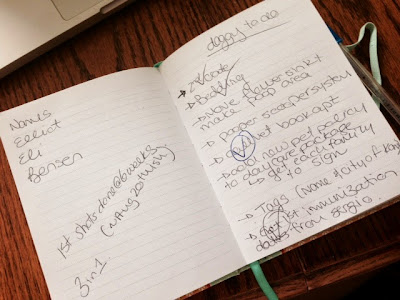 Names
Elliot
Eli
Bensen
1st shots done@6weeks
(~Aug 20th ish)
3 in 1
doggy to do
→ crate
→ Bedding
→ Move flowers
make poop area
→ pooper scooper system
→ vet book apt
→ new pet policy
to daycare package
↳ get each family
to sign
→ Tags (name
→ Get 1st immunization
dates from